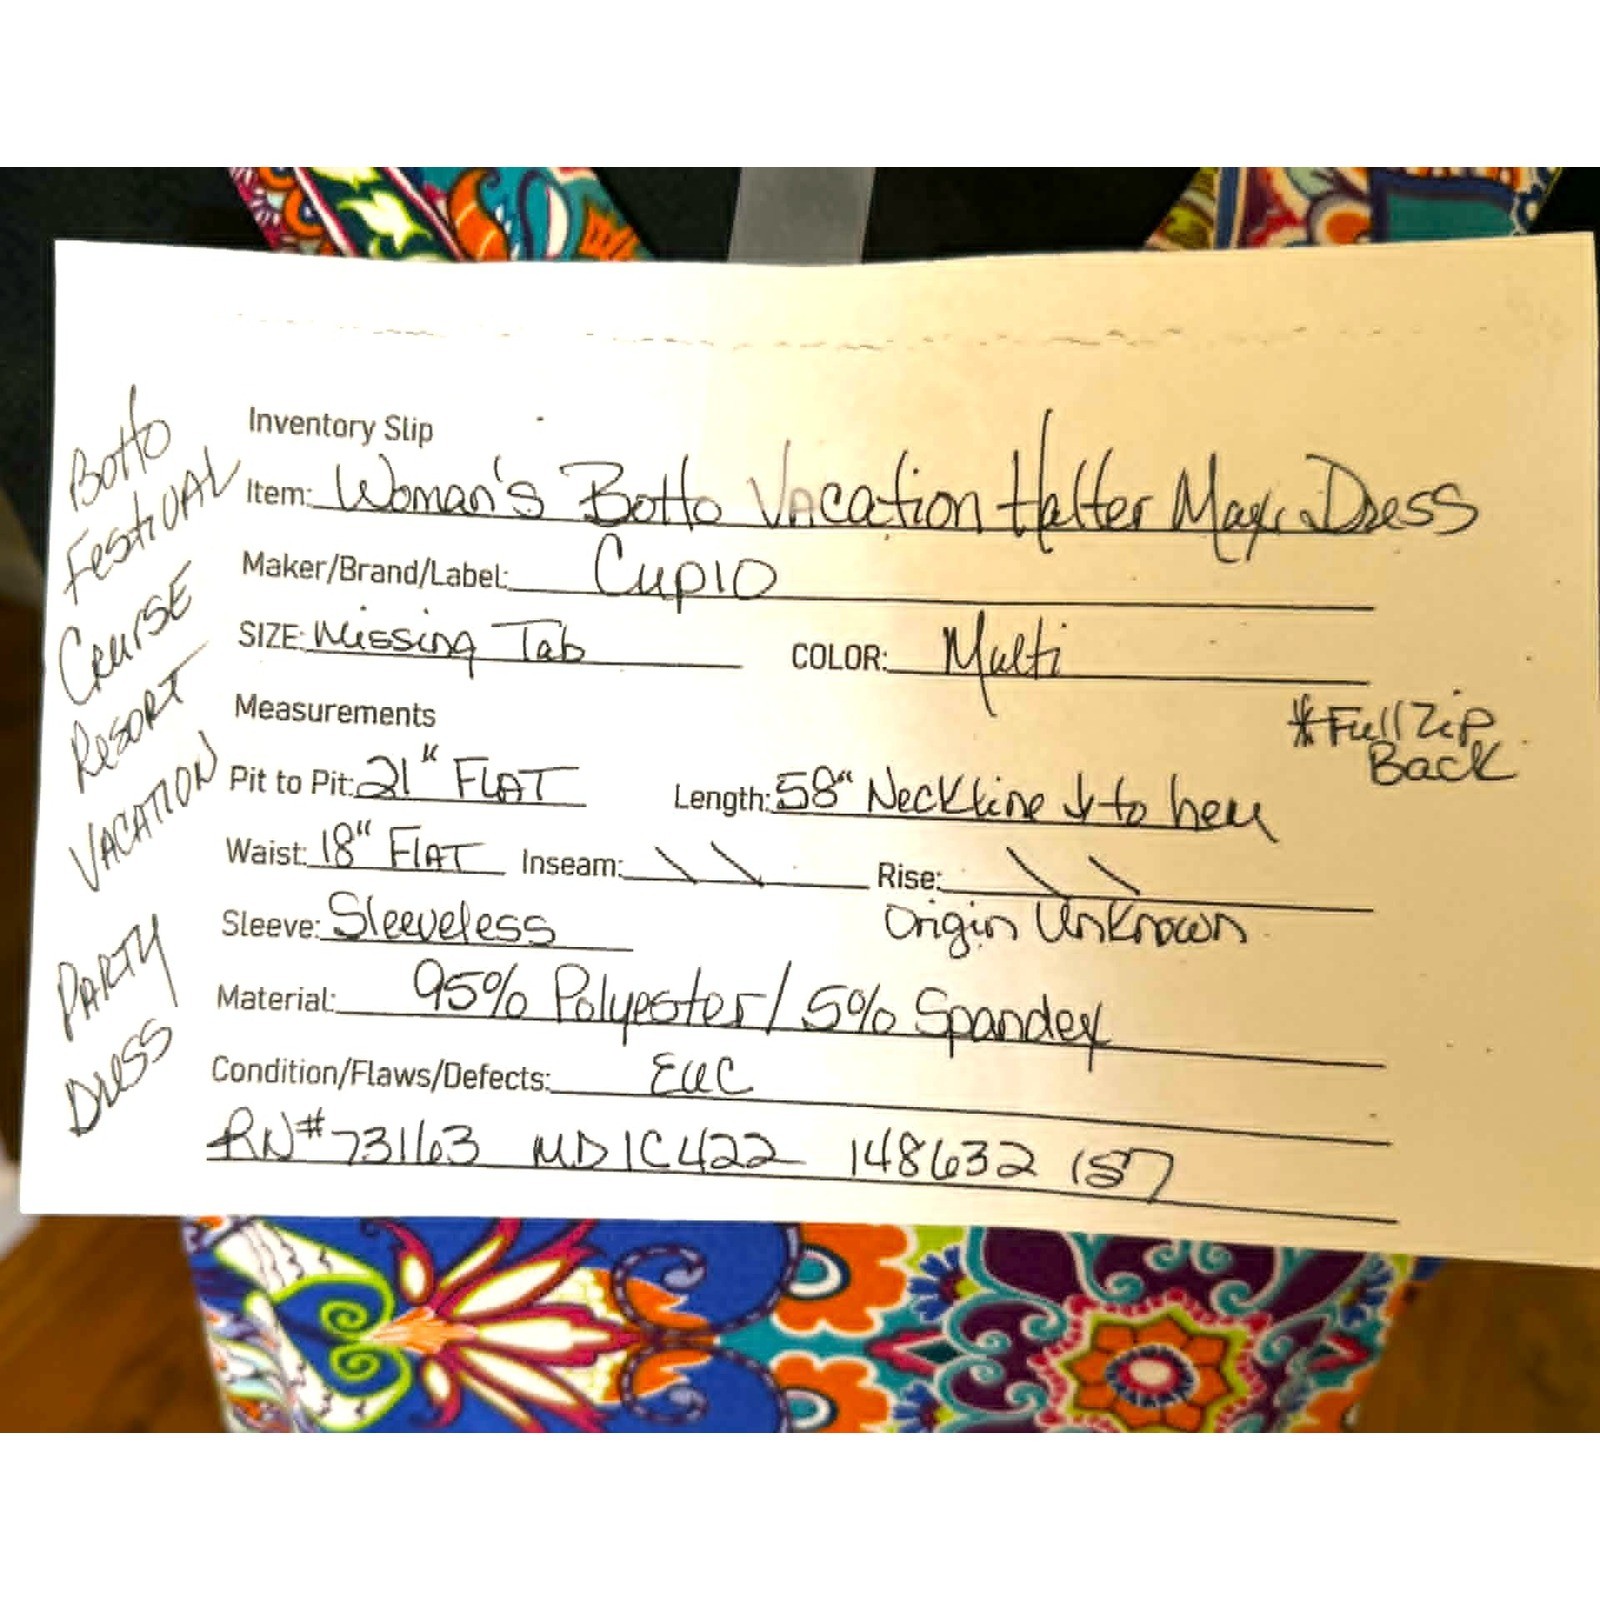 Inventory Slip
Item: Woman's Botto Vacation Halter Maxi Dress
Maker/Brand/Label: Cupio
SIZE: Missing Tab COLOR: Multi
Measurements
*Full Zip
Back
Pit to Pit: 21" FLAT Length: 58" Neckline ↓ to hem
Waist: 18" FLAT Inseam: \ \ Rise: \ \
Sleeve: Sleeveless
Origin Unknown
Material: 95% Polyester/ 5% Spandex
Condition/Flaws/Defects: EUC
RN# 73163 MD1C422 148632 157
Botto
Festival
Cruise
Resort
Vacation
Party
Dress